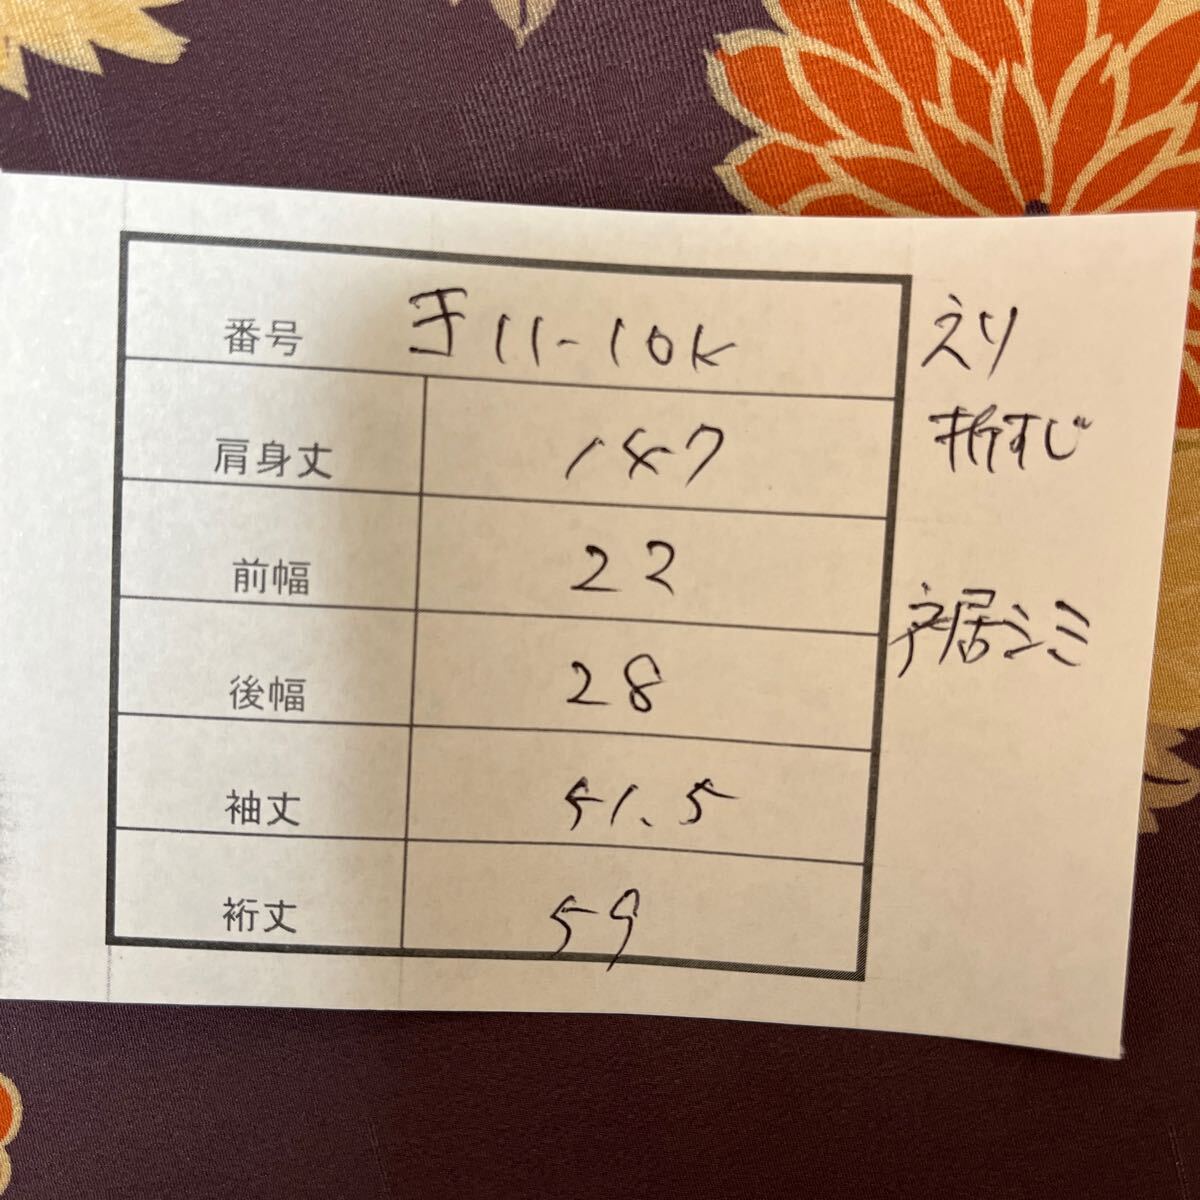 番号 手11-10K
肩身丈 147
前幅 22
後幅 28
袖丈 51.5
裄丈 59
えり
折すじ
居シミ